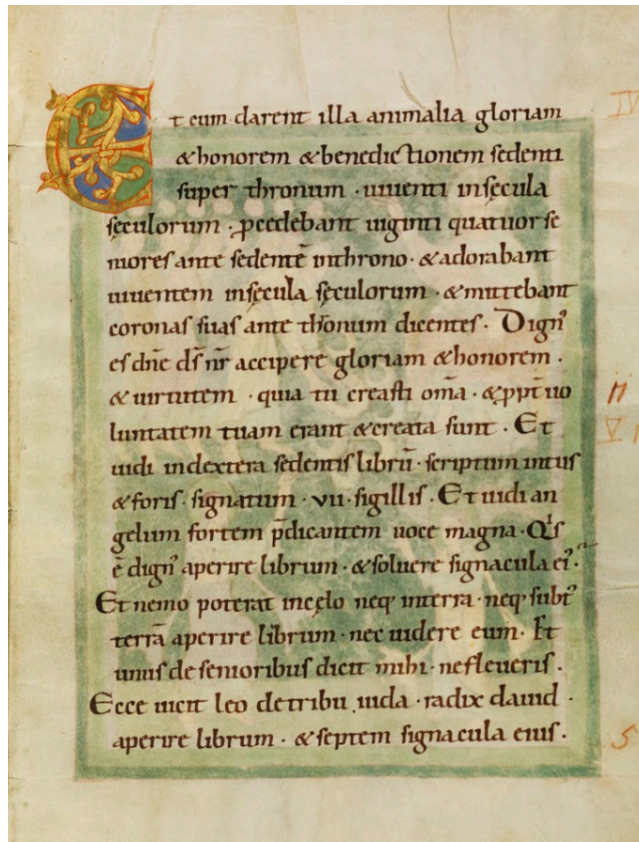 Et cum darent illa animalia gloriam
& honorem & benedictionem sedenti
super thronum · uiuenti in sęcula
sęculorum · ꝓcedebant uiginti quatuor se
niores ante sedentē inthrono · & adorabant
uiuentem in sęcula sęculorum · & mittebant
coronas suas ante thronum dicentes · Dignꝰ
es dn̄e ds̄ nr̄ accipere gloriam & honorem ·
& uirtutem · quia tu creasti om̄a · & ꝓpt̄ uo
luntatem tuam erant & creata sunt · Et
uidi indextera sedentis librū · scriptum intus
& foris · signatum · vii · sigillis · Et uidi an
gelum fortem p̄dicantem uoce magna · Qis
ē dignꝰ aperire librum · & soluere signacula eiꝰ ·
Et nemo poterat incęlo neq; interra · neq; subtꝰ
terrā aperire librum · nec uidere eum · Et
unus de senioribus dicit mihi · nefleueris ·
Ecce uicit leo detribu iuda · radix dauid ·
aperire librum · & septem signacula eius ·
IV
V
5